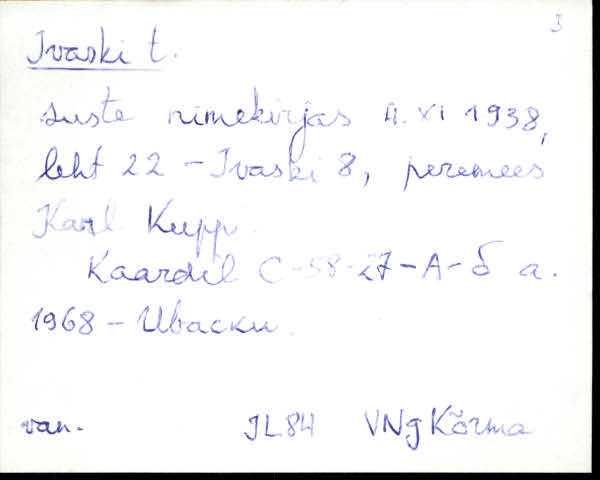 3
Ivaski t.
suste nimekirjas 4. XI 1938,
leht 22 - Ivaski 8, peremees
Karl Kuppi
Kaardil C-58-27-A-б a.
1968 - Иваски.
van. JL84 VNg Kõrma